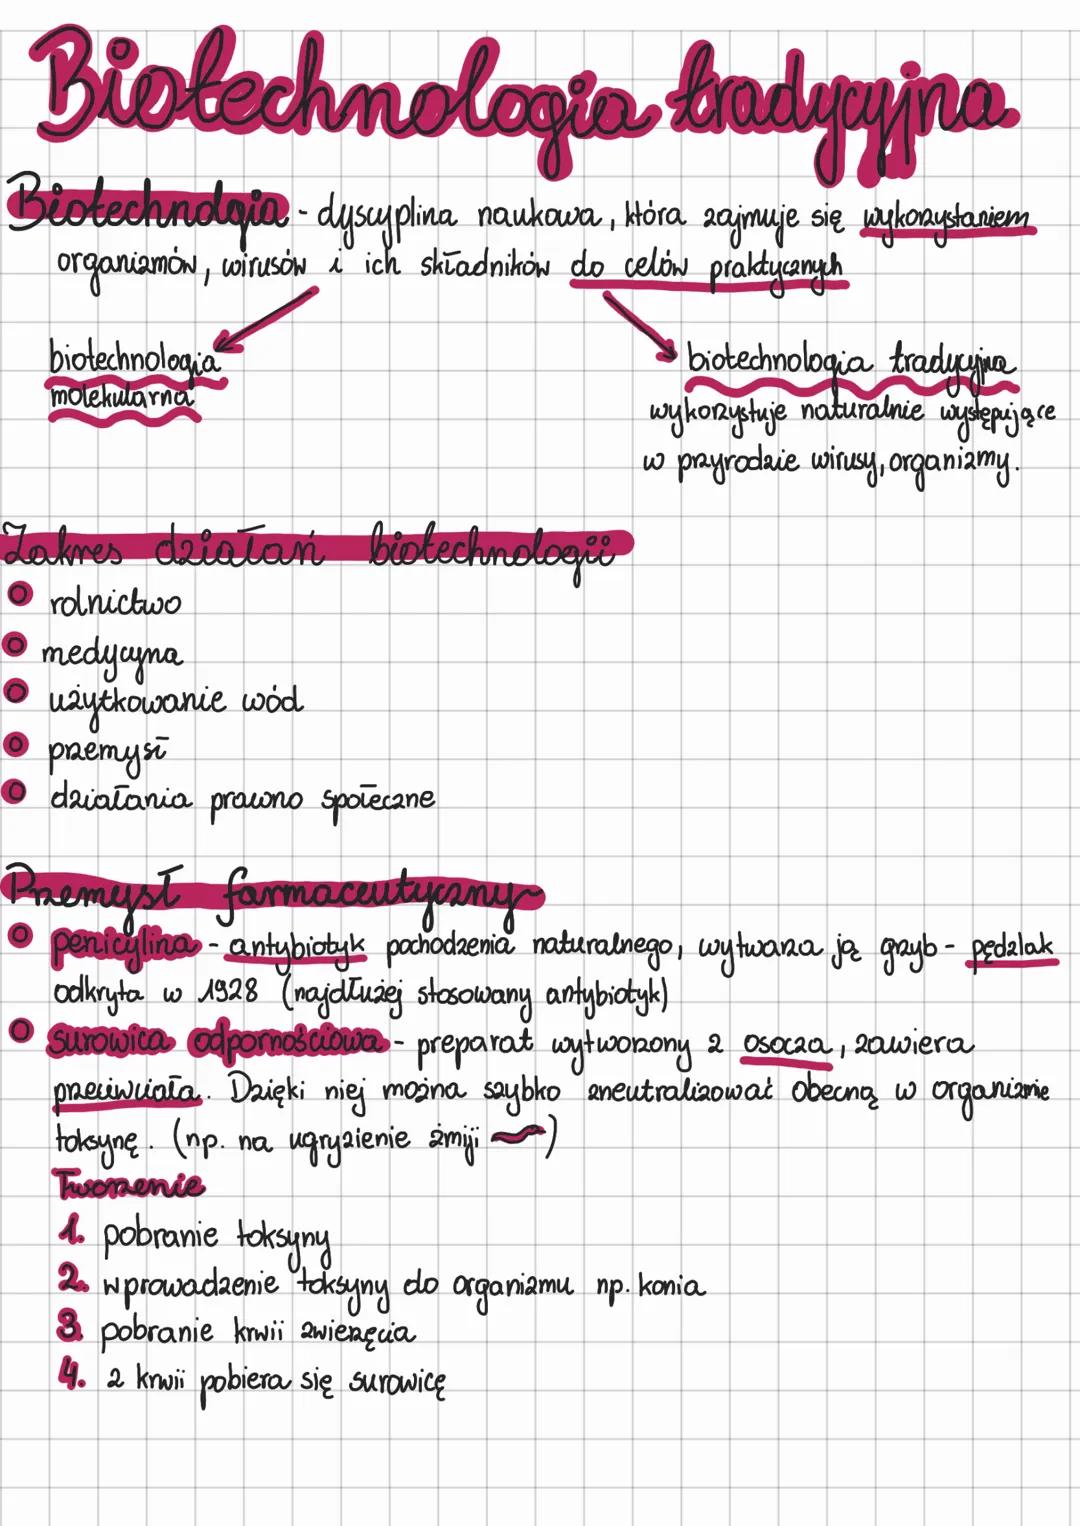 Biotechnologia tradycyjna
Biotechnologia - dyscyplina naukowa, która zajmuje się wykorzystaniem
organizmów, wirusów i ich składników do celów praktycznych
biotechnologia
molekularna
biotechnologia tradycyjna
wykorzystuje naturalnie występujące
w przyrodzie wirusy, organizmy.
Zakres działań biotechnologii
rolnictwo
medycyna
użytkowanie wód
przemysł
działania prawno społeczne
Przemysł farmaceutyczny
penicylina - antybiotyk pochodzenia naturalnego, wytwarza ją grzyb - pędzlak
odkryta w 1928 (najdłużej stosowany antybiotyk)
surowica odpornościowa - preparat wytworzony z osocza, zawiera
przeciwciała. Dzięki niej można szybko zneutralizować obecną w organizmie
toksynę. (np. na ugryzienie żmiji )
Tworzenie
1. pobranie toksyny
2. wprowadzenie toksyny do organizmu np. konia
3. pobranie krwii zwierzęcia
4. z krwii pobiera się surowicę